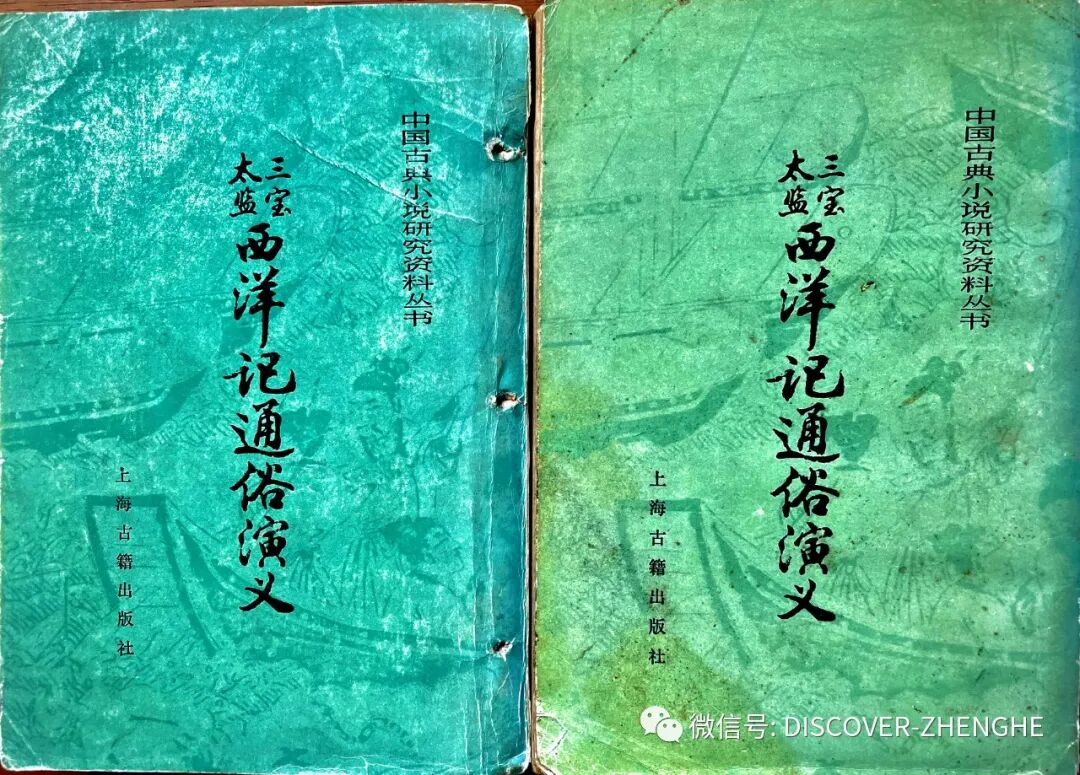 中国古典小说研究资料丛书
三宝
太监
西洋记通俗演义
上海古籍出版社
中国古典小说研究资料丛书
三宝
太监
西洋记通俗演义
上海古籍出版社
微信号: DISCOVER-ZHENGHE